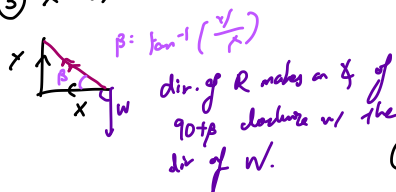 ③
β = tan⁻¹ (Y/X)
Y
β
X
W
dir. of R makes an ∡ of
90+β clockwise w/ the
dir of W.